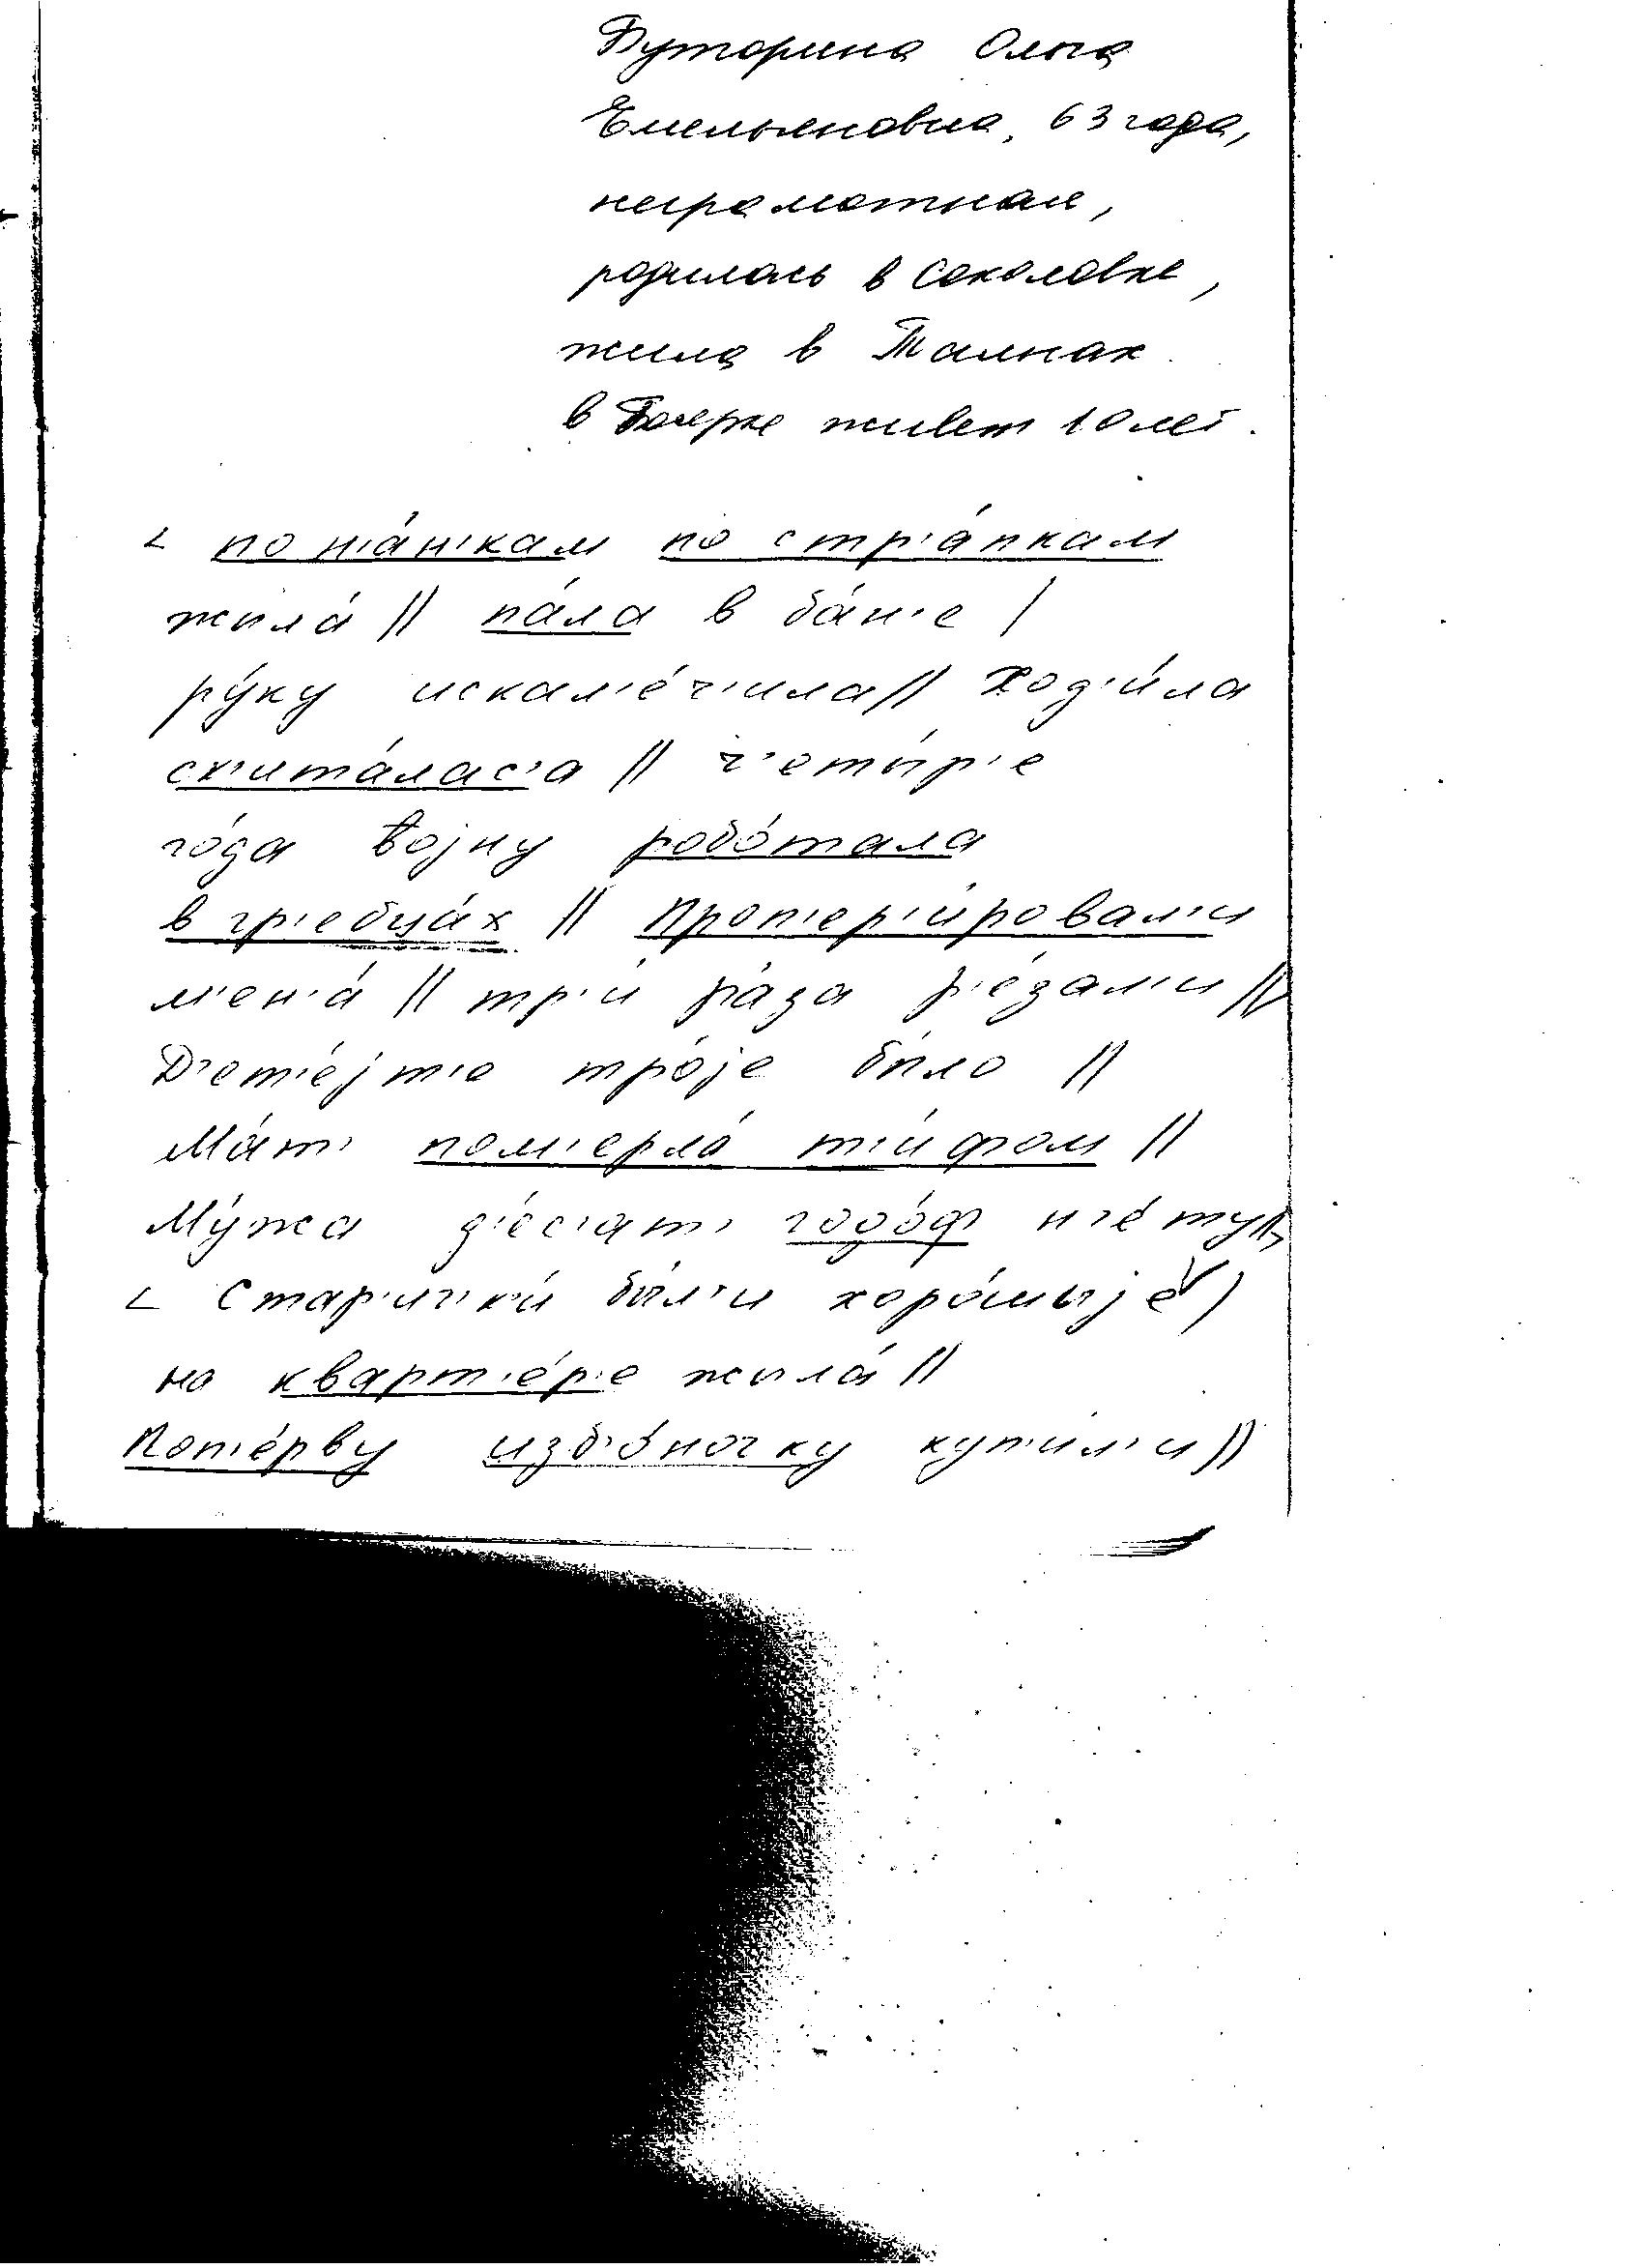 Буторина Ольга
Емельяновна, 63 года,
неграмотная,
родилась в Соколовке,
жила в Талнах
в живет 10 лет.
∠ по н'а́н'кам по стр'а́пкам
жыла́ // па́ла в ба́н'е /
ру́ку искал'е́ч'ила // Ход'и́ла
ск'ита́лас'а // ч'еты́р'е
го́да войну робо́тала
в гр'ебца́х // Проп'ер'и́ровал'и
м'ен'а́ // тр'и́ ра́за р'е́зал'и //
Д'ет'е́јт'е тро́је бы́ло //
Ма́т' пом'ерла́ т'и́фом //
Му́жа д'е́с'ат' годо́ф н'е́ту //
∠ Стар'ич'к'и́ бы́л'и хоро́шыје /
на кварт'е́р'е жыла́ //
Поп'е́рву изб'о́ночку куп'ил'и //